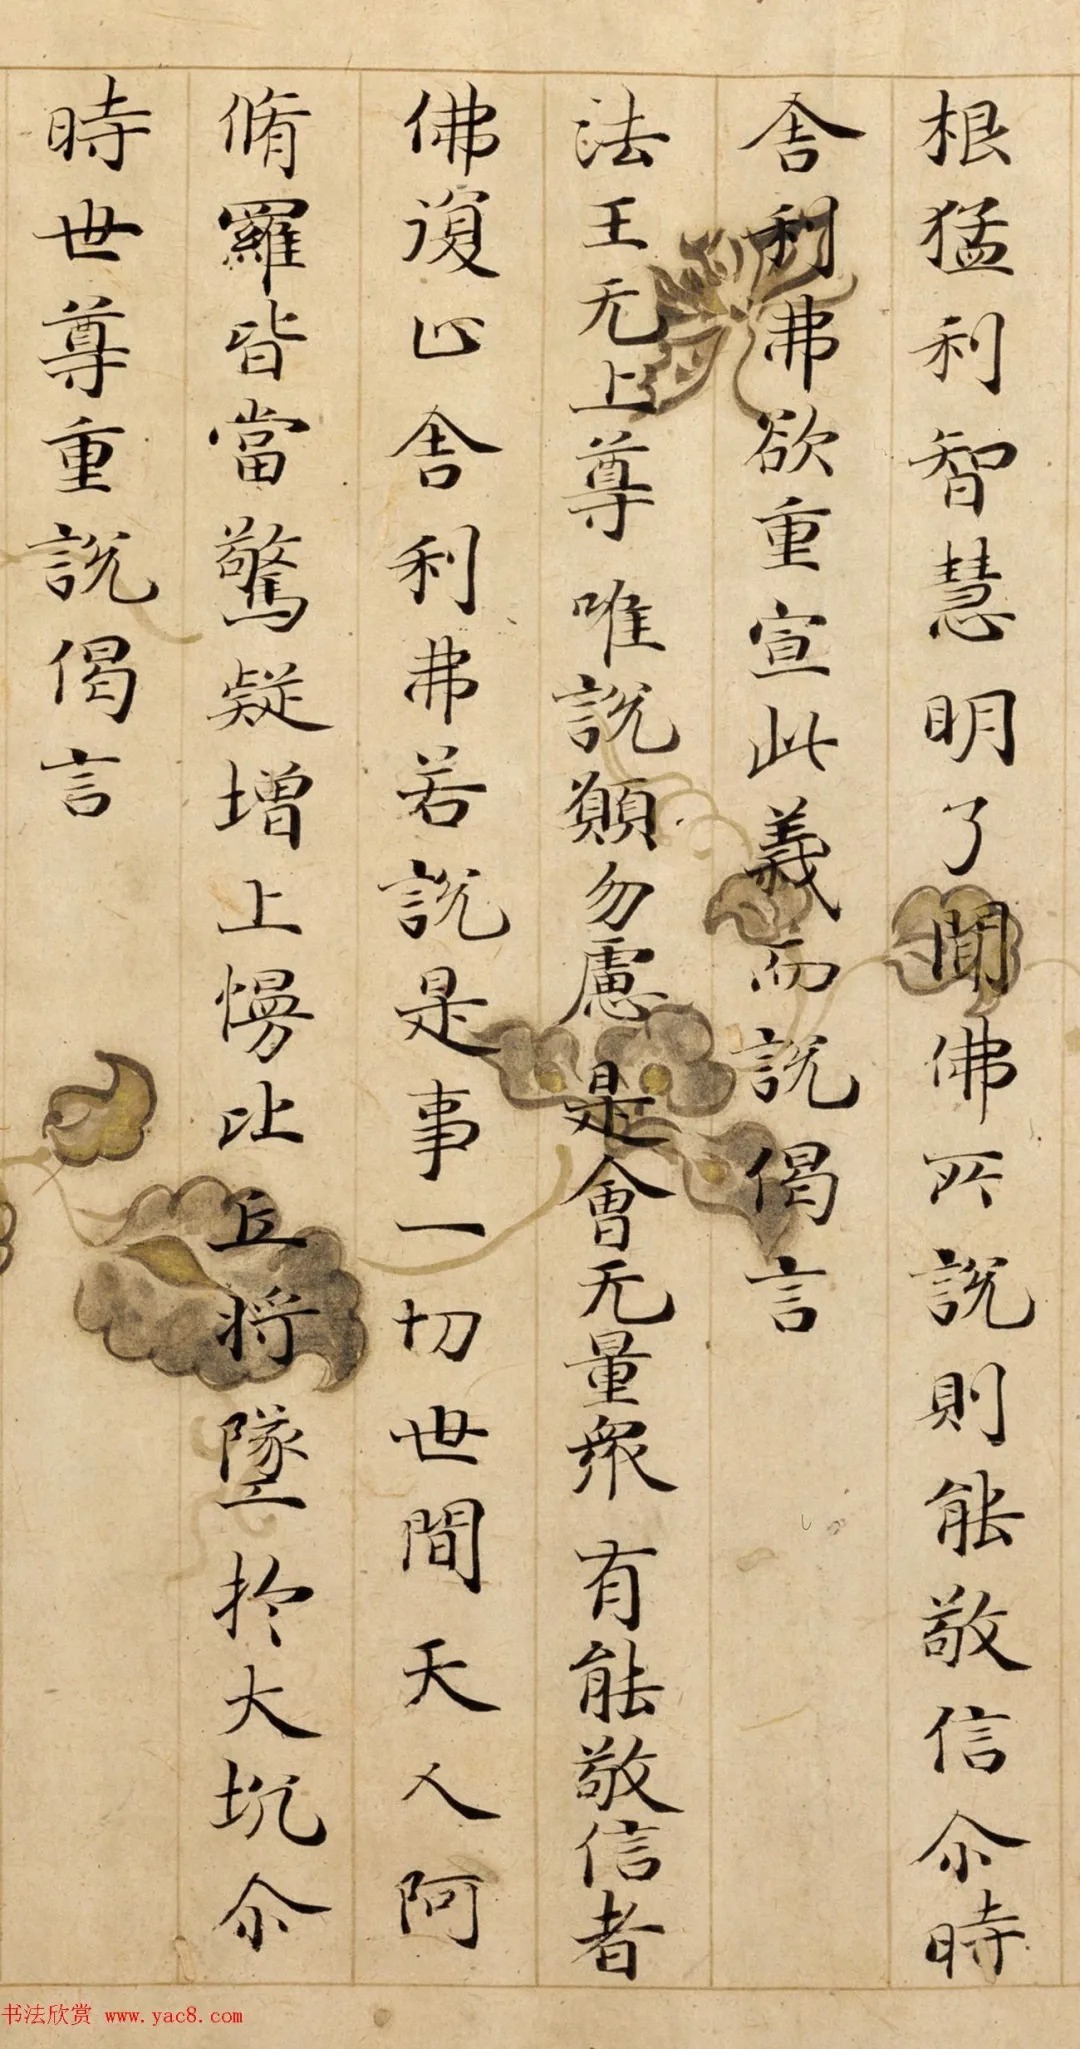 根猛利智慧明了聞佛所說則能敬信尒時
舎利弗欲重宣此義而說偈言
法王无上尊 唯說願勿慮 是會无量衆 有能敬信者
佛復止舎利弗若說是事一切世間天人阿
脩羅皆當驚疑增上慢比丘將墜於大坑尒
時世尊重說偈言
书法欣赏 www.yac8.com